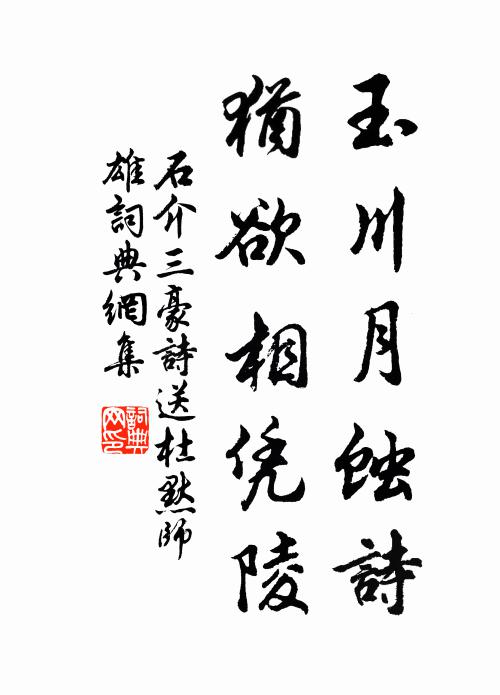 玉川月蝕詩
猶欲相凭陵
石介三豪詩送杜默師
雄詞典網集
詞典网印